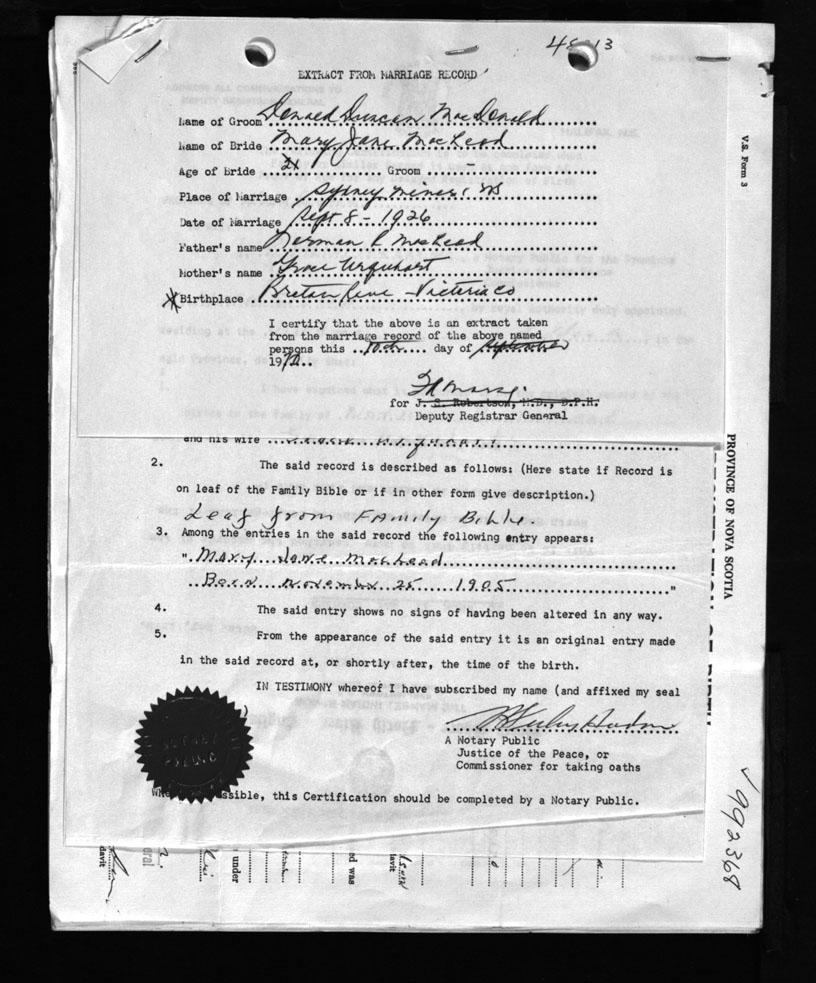 EXTRACT FROM MARRIAGE RECORD
V.S. Form 3
Name of Groom Donald Duncan MacDonald
Name of Bride Mary Jane MacLeod
Age of Bride 21 Groom -
Place of Marriage Sydney Mines, NS
Date of Marriage Sept 8 - 1926
Father's name Norman MacLeod
Mother's name Grace Urquhart
Birthplace Breton Cove - Victoria Co
I certify that the above is an extract taken
from the marriage record of the above named
persons this 10th day of September
19
for J. S. Robertson, M.D., D.P.H.
Deputy Registrar General
and his wife
2. The said record is described as follows: (Here state if Record is
on leaf of the Family Bible or if in other form give description.)
Leaf from Family Bible.
3. Among the entries in the said record the following entry appears:
" Mary Jane MacLeod
Born November 25 1905 "
4. The said entry shows no signs of having been altered in any way.
5. From the appearance of the said entry it is an original entry made
in the said record at, or shortly after, the time of the birth.
IN TESTIMONY whereof I have subscribed my name (and affixed my seal
)
NOTARY
PUBLIC
A Notary Public
Justice of the Peace, or
Commissioner for taking oaths
this Certification should be completed by a Notary Public.
PROVINCE OF NOVA SCOTIA
992368
under
ed was
davit